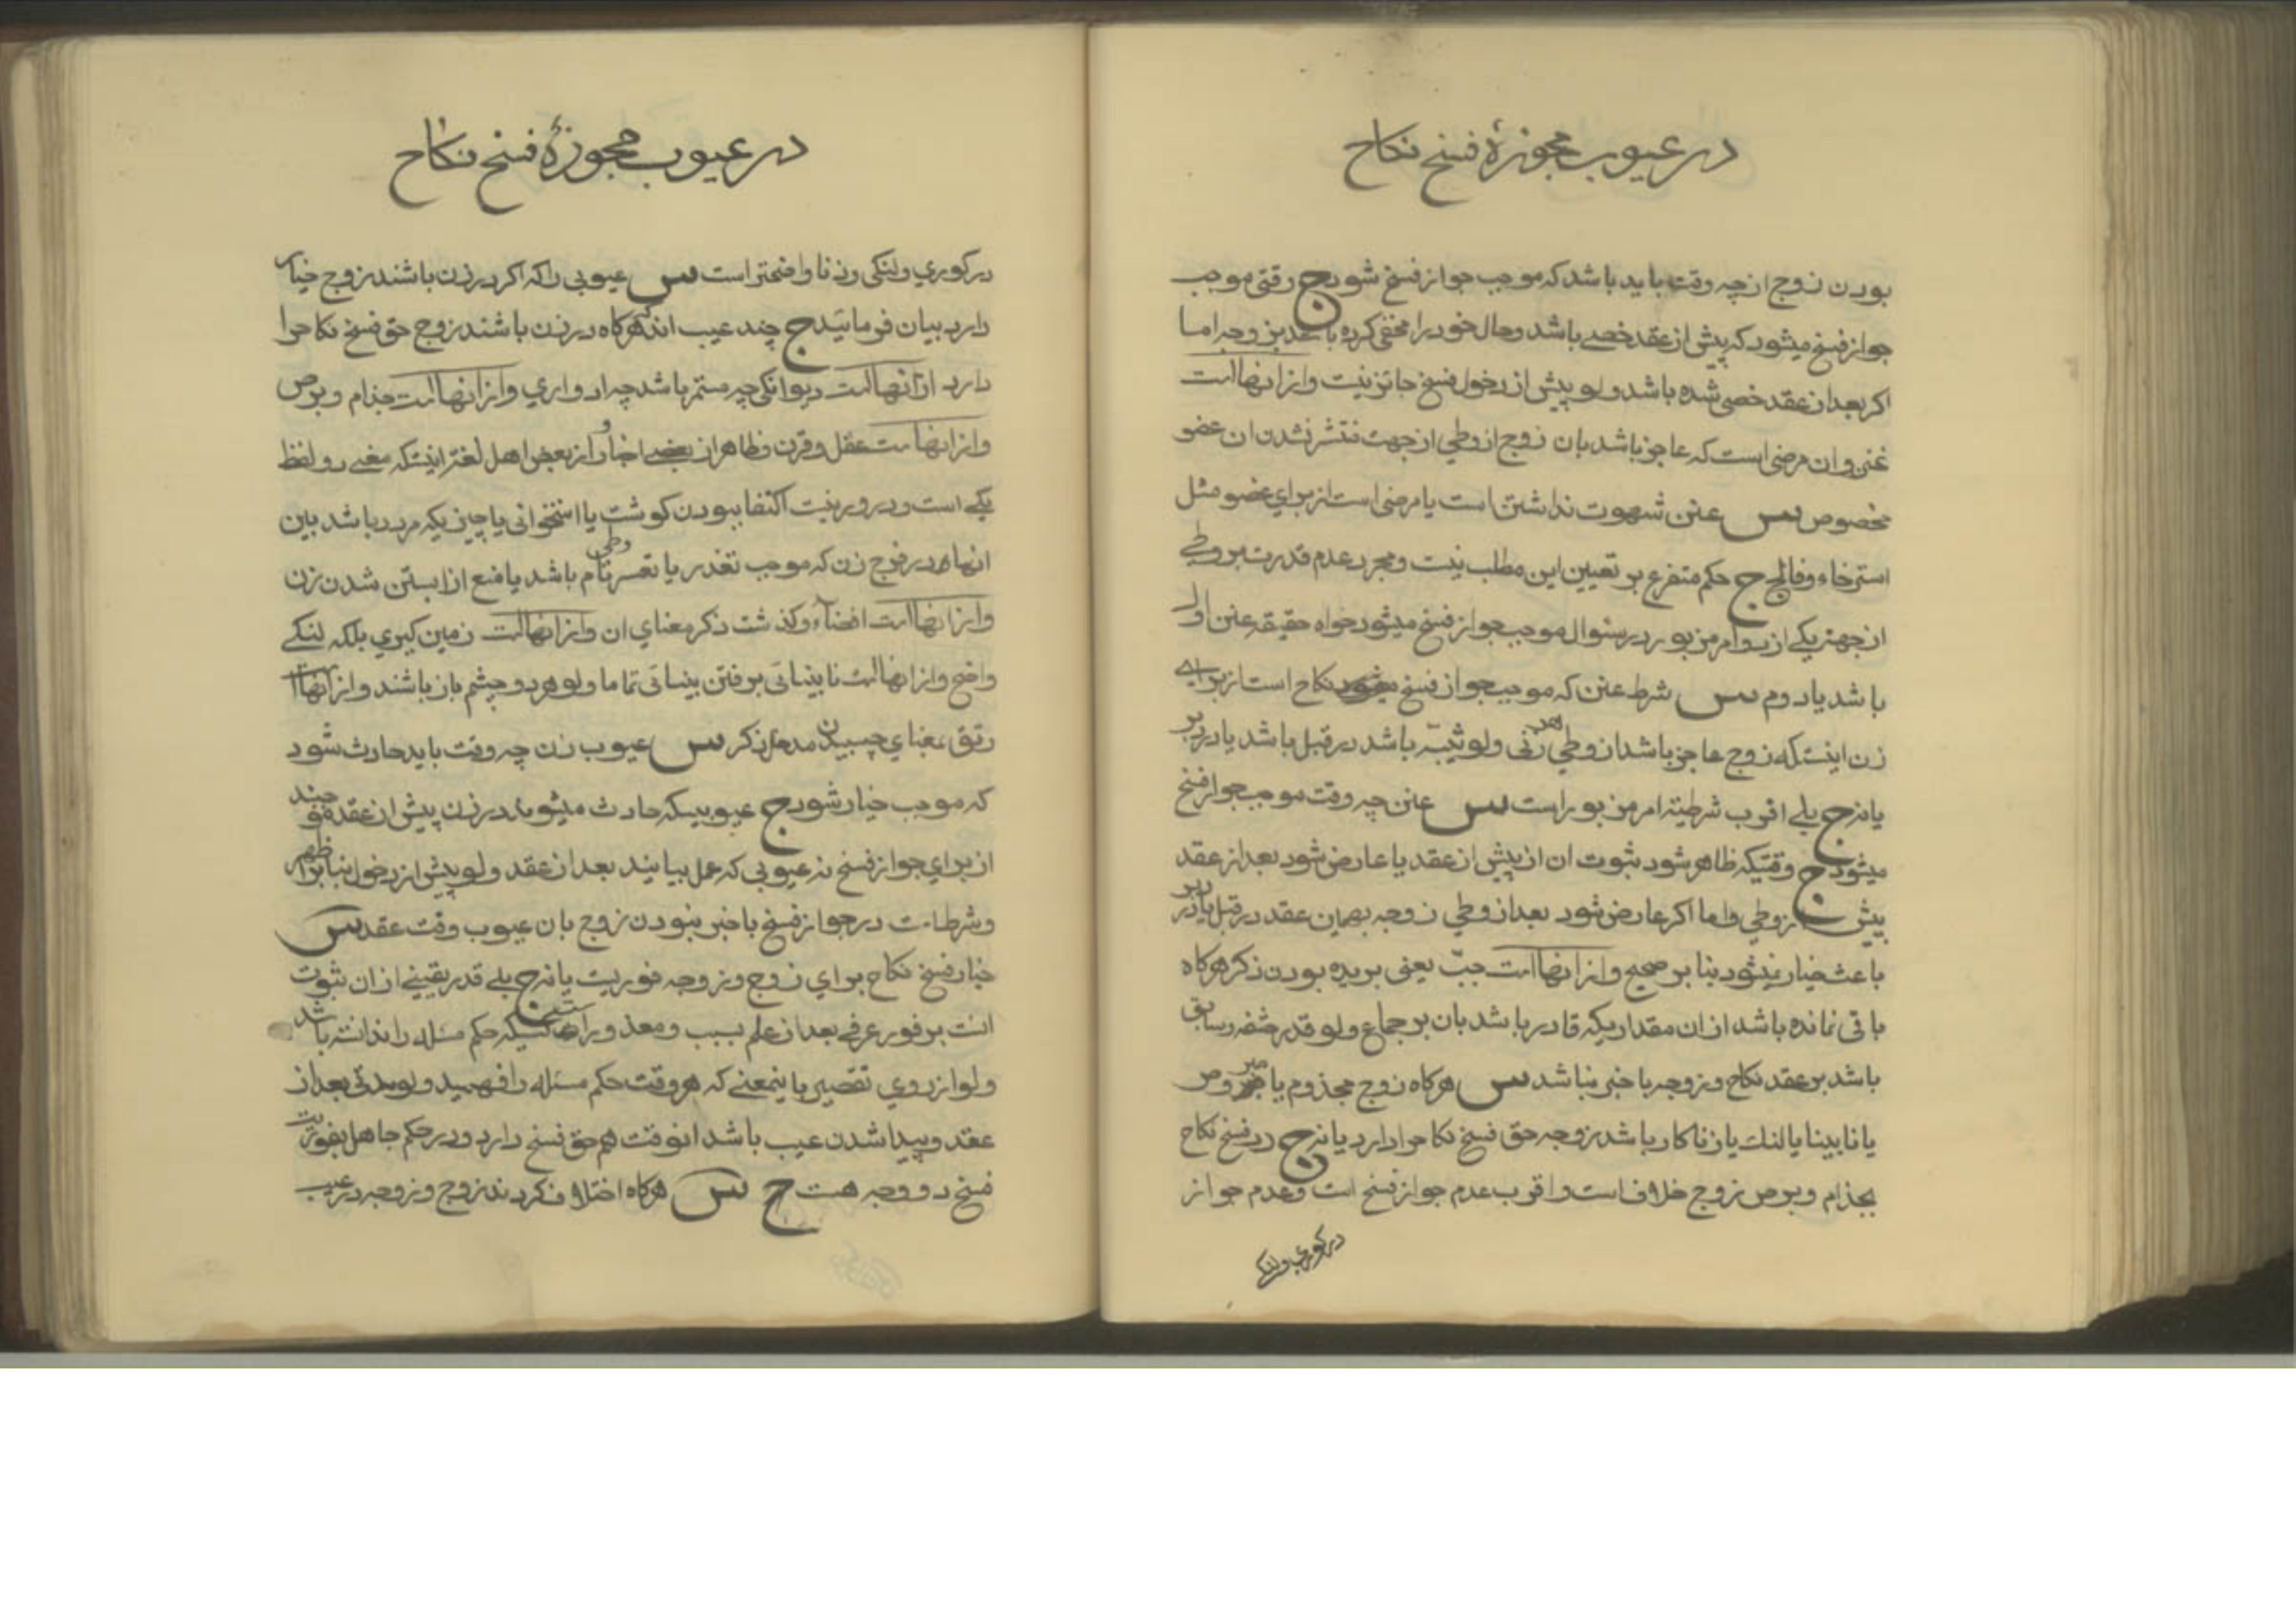 در عیوب مجوزهٔ فسخ نکاح
بودن زوج از چه وقت باید باشد که موجب جواز فسخ شود ج وقتی موجب
جواز فسخ میشود که پیش از عقد خصے باشد وحال خود را مخفی کرده باشد بزوجه اما
اکر بعد از عقد خصی شده باشد ولو پیش از دخول فسخ جائز نیست واز انها است
عنن و ان مرضی است که عاجز باشد بان زوج از وطي از جهت منتشر نشدن ان عضو
مخصوص س عنن شهوت نداشتن است یا مرضی است از براي عضو مثل
استرخاء وفالج ج حکم متفرع بر تعیین این مطلب نیست و مجرد عدم قدرت بر وطے
از جهة یکے از دو امر مزبور در سئوال موجب جواز فسخ میشود خواه حقیقه عنن اول
باشد یا دوم س شرط عنن که موجب جواز فسخ نکاح است از براے
زن اینست که زوج عاجز باشد از وطي هر زنی ولو ثیّبه باشد در قبل باشد یا در دبر
یا نه ج بلے اقرب شرطیّة امر مزبور است س عنن چه وقت موجب جواز فسخ
میشود ج وقتیکه ظاهر شود ثبوت ان از پیش از عقد یا عارض شود بعد از عقد
پیش از وطي واما اکر عارض شود بعد از وطي زوجه بهمین عقد در قبل یا در دبر
باعث خیار نمیشود بنا بر صحیح واز انها است جبّ یعنی بریده بودن ذکر هرکاه
باقی نمانده باشد از ان مقداریکه قادر باشد بان بر جماع ولو قدر حشفه وسابق
باشد بر عقد نکاح و زوجه باخبر نباشد س هرکاه زوج مجذوم یا مبروص
یا نابینا یا لنك یا زناکار باشد زوجه حق فسخ نکاح را دارد یا نه ج در فسخ نکاح
بجذام و برص زوج خلاف است واقرب عدم جواز فسخ است وعدم جواز
در کوري ولنکے
در عیوب مجوزهٔ فسخ نکاح
در کوري ولنکی وزنا واضحتر است س عیوبی را که اکر در زن باشند زوج خیار
دارد بیان فرمائید ج چند عیب اند که هرکاه در زن باشند زوج حق فسخ نکاح را
دارد از انها است دیوانکی چه مستمر باشد چه ادواري واز انها است جذام وبرص
واز انها است عفل وقرن وظاهر از بعضے اخبار واز بعض اهل لغة اینست که معنے دو لفظ
یکے است ودور نیست اکتفا ببودن کوشت یا استخوانی یا چیزیکه مردد باشد بین
انها در فرج زن که موجب تعذر یا تعسر وطي تام باشد یا منع از ابستن شدن زن
واز انها است افضاء وکذشت ذکر معناي ان واز انها است زمین کیري بلکه لنکے
واضح واز انها است نابینائی برفتن بینائی تماما ولو هر دو چشم باز باشند واز انها است
رتق بمعناي چسبیدن مدخل ذکر س عیوب زن چه وقت باید حادث شود
که موجب خیار شود ج عیوبیکه حادث میشوند در زن پیش از عقد
از براي جواز فسخ نه عیوبی که بعمل بیایند بعد از عقد ولو پیش از دخول بنا بر اظهر
وشرط است در جواز فسخ باخبر نبودن زوج بان عیوب وقت عقد س
خیار فسخ نکاح براي زوج وزوجه فوریست یا نه ج بلے قدر یقینے از ان ثبوت
انست بر فور عرفے بعد از علم بسبب ومعذور است کسیکه حکم مسئله را ندانسته باشد
ولو از روي تقصیر باینمعنے که هر وقت حکم مسئله را فهمید ولو مدتی بعد از
عقد وپیدا شدن عیب باشد انوقت هم حق فسخ دارد ودر حکم جاهل بفوریت
فسخ دو وجه هست ج س هرکاه اختلاف کردند زوج وزوجه در عیب